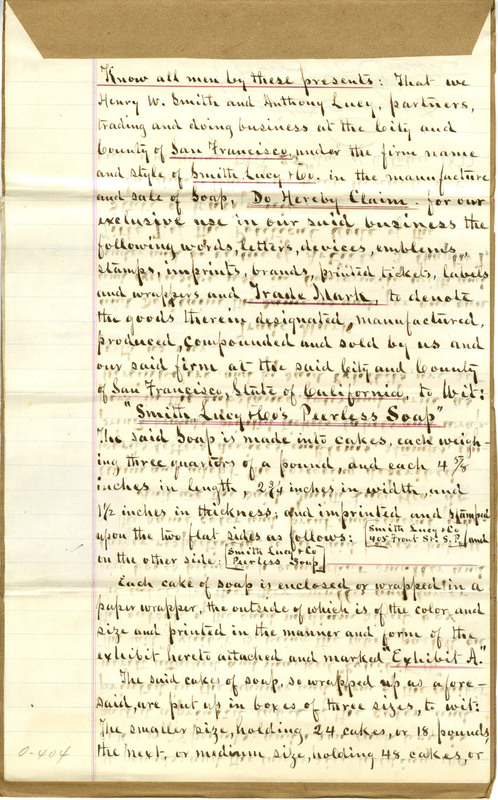 Know all men by these presents: That we
Henry W. Smith and Anthony Lucy, partners,
trading and doing business at the City and
County of San Francisco, under the firm name
and style of Smith Lucy & Co. in the manufacture
and sale of Soap, Do Hereby Claim. for our
exclusive use in our said business the
following words, letters, devices, emblems,
stamps, imprints, brands, printed tickets, labels
and wrappers and Trade Mark, to denote
the goods therein designated, manufactured,
produced, compounded and sold by us and
our said firm at the said City and County
of San Francisco, State of California, to Wit:
"Smith Lucy & Co's Peerless Soap"
The said Soap is made into cakes, each weigh-
ing three quarters of a pound, and each 4 5/8
inches in length, 2 3/4 inches in width, and
1 1/2 inches in thickness; and imprinted and stamped
upon the two flat sides as follows: Smith Lucy & Co 405 Front St. S. F. and
on the other side: Smith Lucy & Co Peerless Soap
Each cake of soap is enclosed or wrapped in a
paper wrapper, the outside of which is of the color and
size and printed in the manner and form of the
exhibit hereto attached and marked "Exhibit A."
The said cakes of soap, so wrapped up as afore-
said, are put up in boxes of three sizes, to wit:
The smaller size, holding 24 cakes, or 18 pounds
the next, or medium size, holding 48 cakes, or
0-404